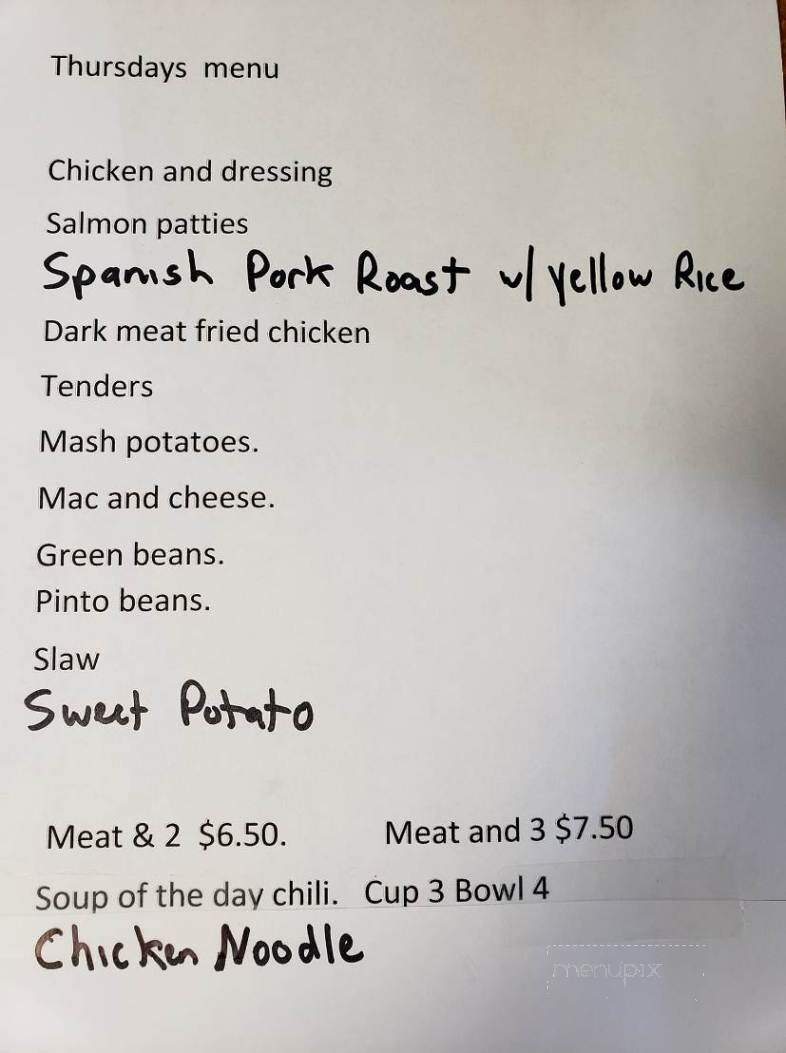 Thursdays menu
Chicken and dressing
Salmon patties
Spanish Pork Roast w/ yellow Rice
Dark meat fried chicken
Tenders
Mash potatoes.
Mac and cheese.
Green beans.
Pinto beans.
Slaw
Sweet Potato
Meat & 2 $6.50. Meat and 3 $7.50
Soup of the day chili. Cup 3 Bowl 4
Chicken Noodle
menupix